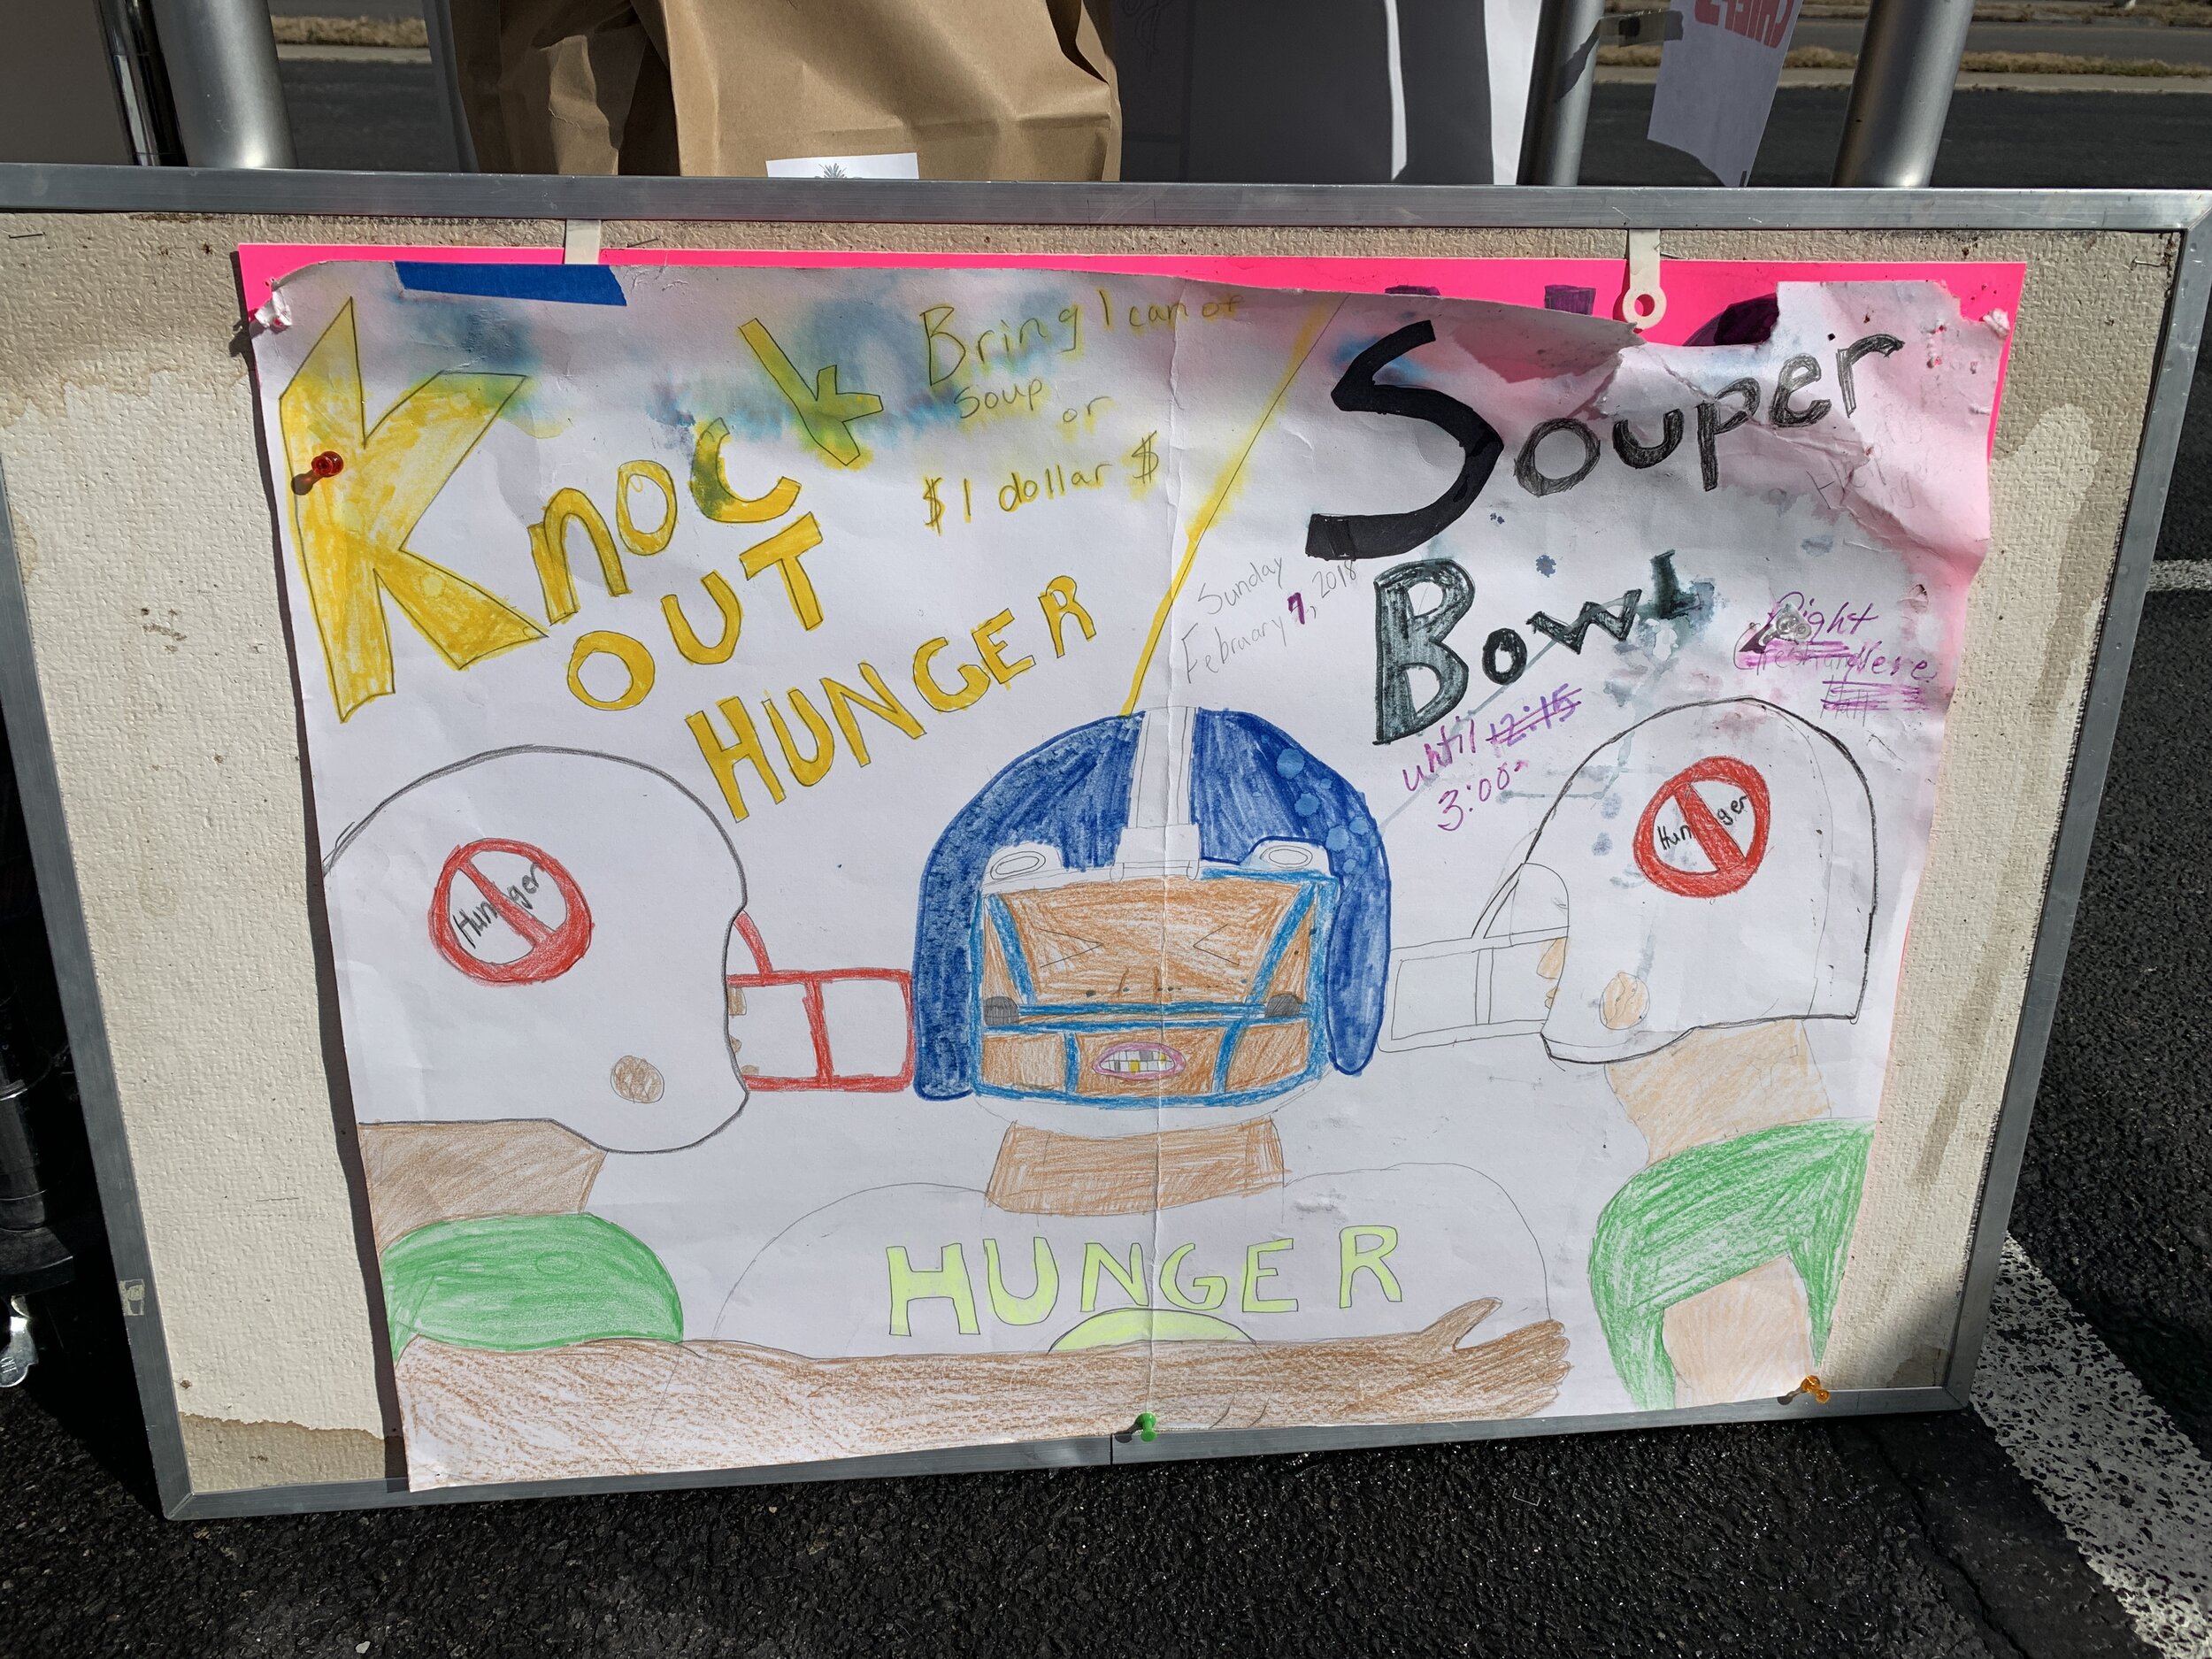 Knock
OUT
HUNGER
Bring 1 can of
soup
or
$ 1 dollar $
Souper
Bowl
Sunday
February 7, 2018
until 12:15
3:00
Right
Here
Hall
Hunger
Hunger
HUNGER